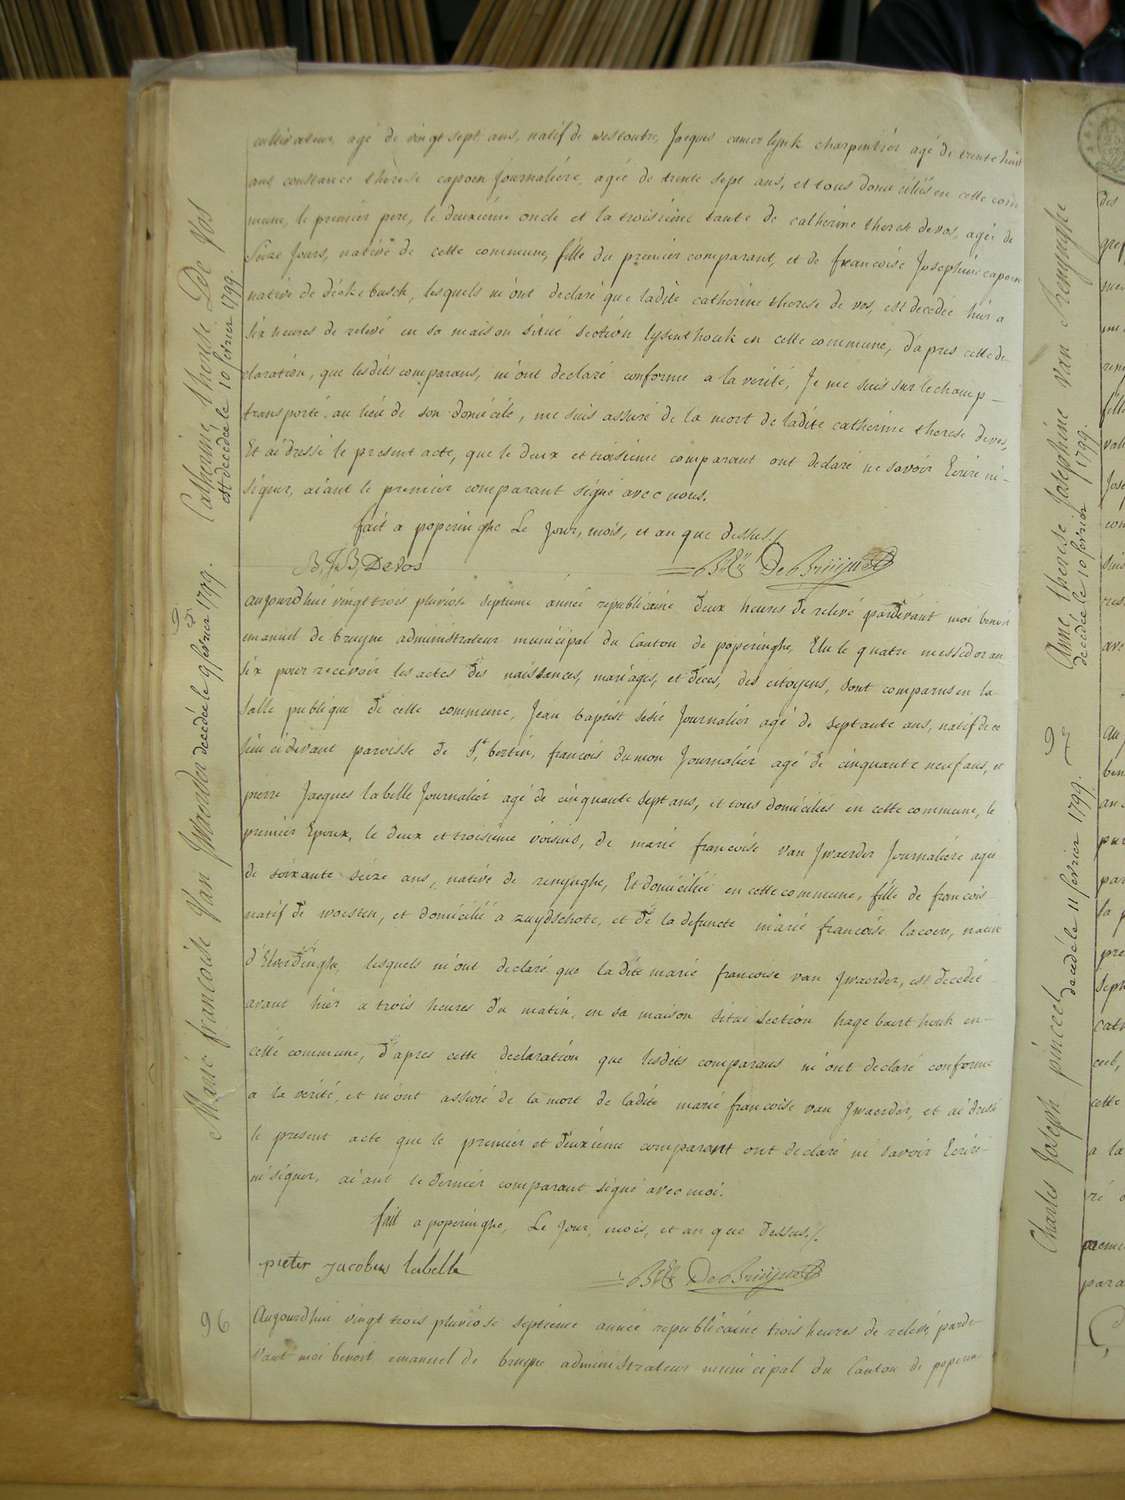 cultivateur, agé de vingt sept ans, natif de westoutre, Jacques camerlynk charpentiér agé de trente huit
ans constance thérèse capoen Journaliére, agée de trente sept ans, et tous domiciliés en cette com
mune, le premiér pere, le deuxiéme oncle et la troisiéme tante de catherine therese devos, agée de
Seize Jours, nativé de cette commune, fille du premiér comparant, et de francoisé Josephine capoen
nativé de dickebusch, lesquels m'ont declaré que ladite catherine therese de vos, est decedée hiér a
six heures de relevé en sa maison situé section lysenthouk en cette commune, d'apres cette de
claration, que lesdits comparans, m'ont declaré conforme a la verité, Je me suis sur le champ
transporté au lieu de son domicile, me suis assuré de la mort de ladite catherine therese devos,
Et ai dressé le present acte, que le deux et troisiéme comparant ont declaré ne savoir Ecrire ni
signer, aiant le premiér comparant signé avec nous.
fait a poperinghe Le Jour, mois, et an que dessus /
B, J, B, Devos
De Bruijne
Catherine therese De Vos
est decedée le 10 février 1799.
aujourdhui vingt trois pluviose septiéme année republicaine deux heures de relevé pardevant moi benoit
emanuel de bruyne administrateur municipal du Canton de poperinghe, Elu le quatre messidor an
six pour recevoir les actes des naissances, mariages, et déces, des citoyens, sont comparus en la
salle publique de cette commune, Jean baptist Journaliér agé de septante ans, natif de ce
lieu cidevant paroisse de St bertin, francois dumon Journaliér agé de cinquante neuf ans, et
pierre Jacques labelle Journaliér agé de cinquante sept ans, et tous domiciliés en cette commune, le
premiér Epoux, le deux et troisiéme voisins, de marié francoisé van Jwaerder Journaliére agée
de soixante seize ans, nativé de renynghe, Et domiciliée en cette commune, fille de francois
natif de woesten, et domicilié a zuydschote, et de la defuncte marié francoisé lacoere, native
d'Elverdinghe, lesquels m'ont declaré que la dite marié francoise van Jwaerder, est decedée
avant hiér a trois heures du matin, en sa maison situé section hagebaert houk en
cette commune, d'apres cette declaration que lesdits comparans m'ont declaré conforme
a la verité, et m'ont assuré de la mort de ladite marié francoise van Jwaerder, et ai dressé
le present acte que le premiér et deuxiéme comparant ont declaré ni savoir Ecrire
ni signer, aiant le derniér comparant signé avec moi.
fait a poperinghe, Le Jour, mois, et an que dessus /.
pieter Jacobus labelle
De Bruijne
95
Marie francoise Van Jwaerder decedée le 9 février 1799.
96
Aujourdhui vingt trois pluviose septiéme année republicainé trois heures de relevé, parde
vant moi benoit, emanuel de bruyne administrateur municipal du Canton de poperin
Anne therese Josephine van Renynghe
decédée le 10 février 1799.
97
Charles Joseph pinceel
decédé le 11 février 1799.